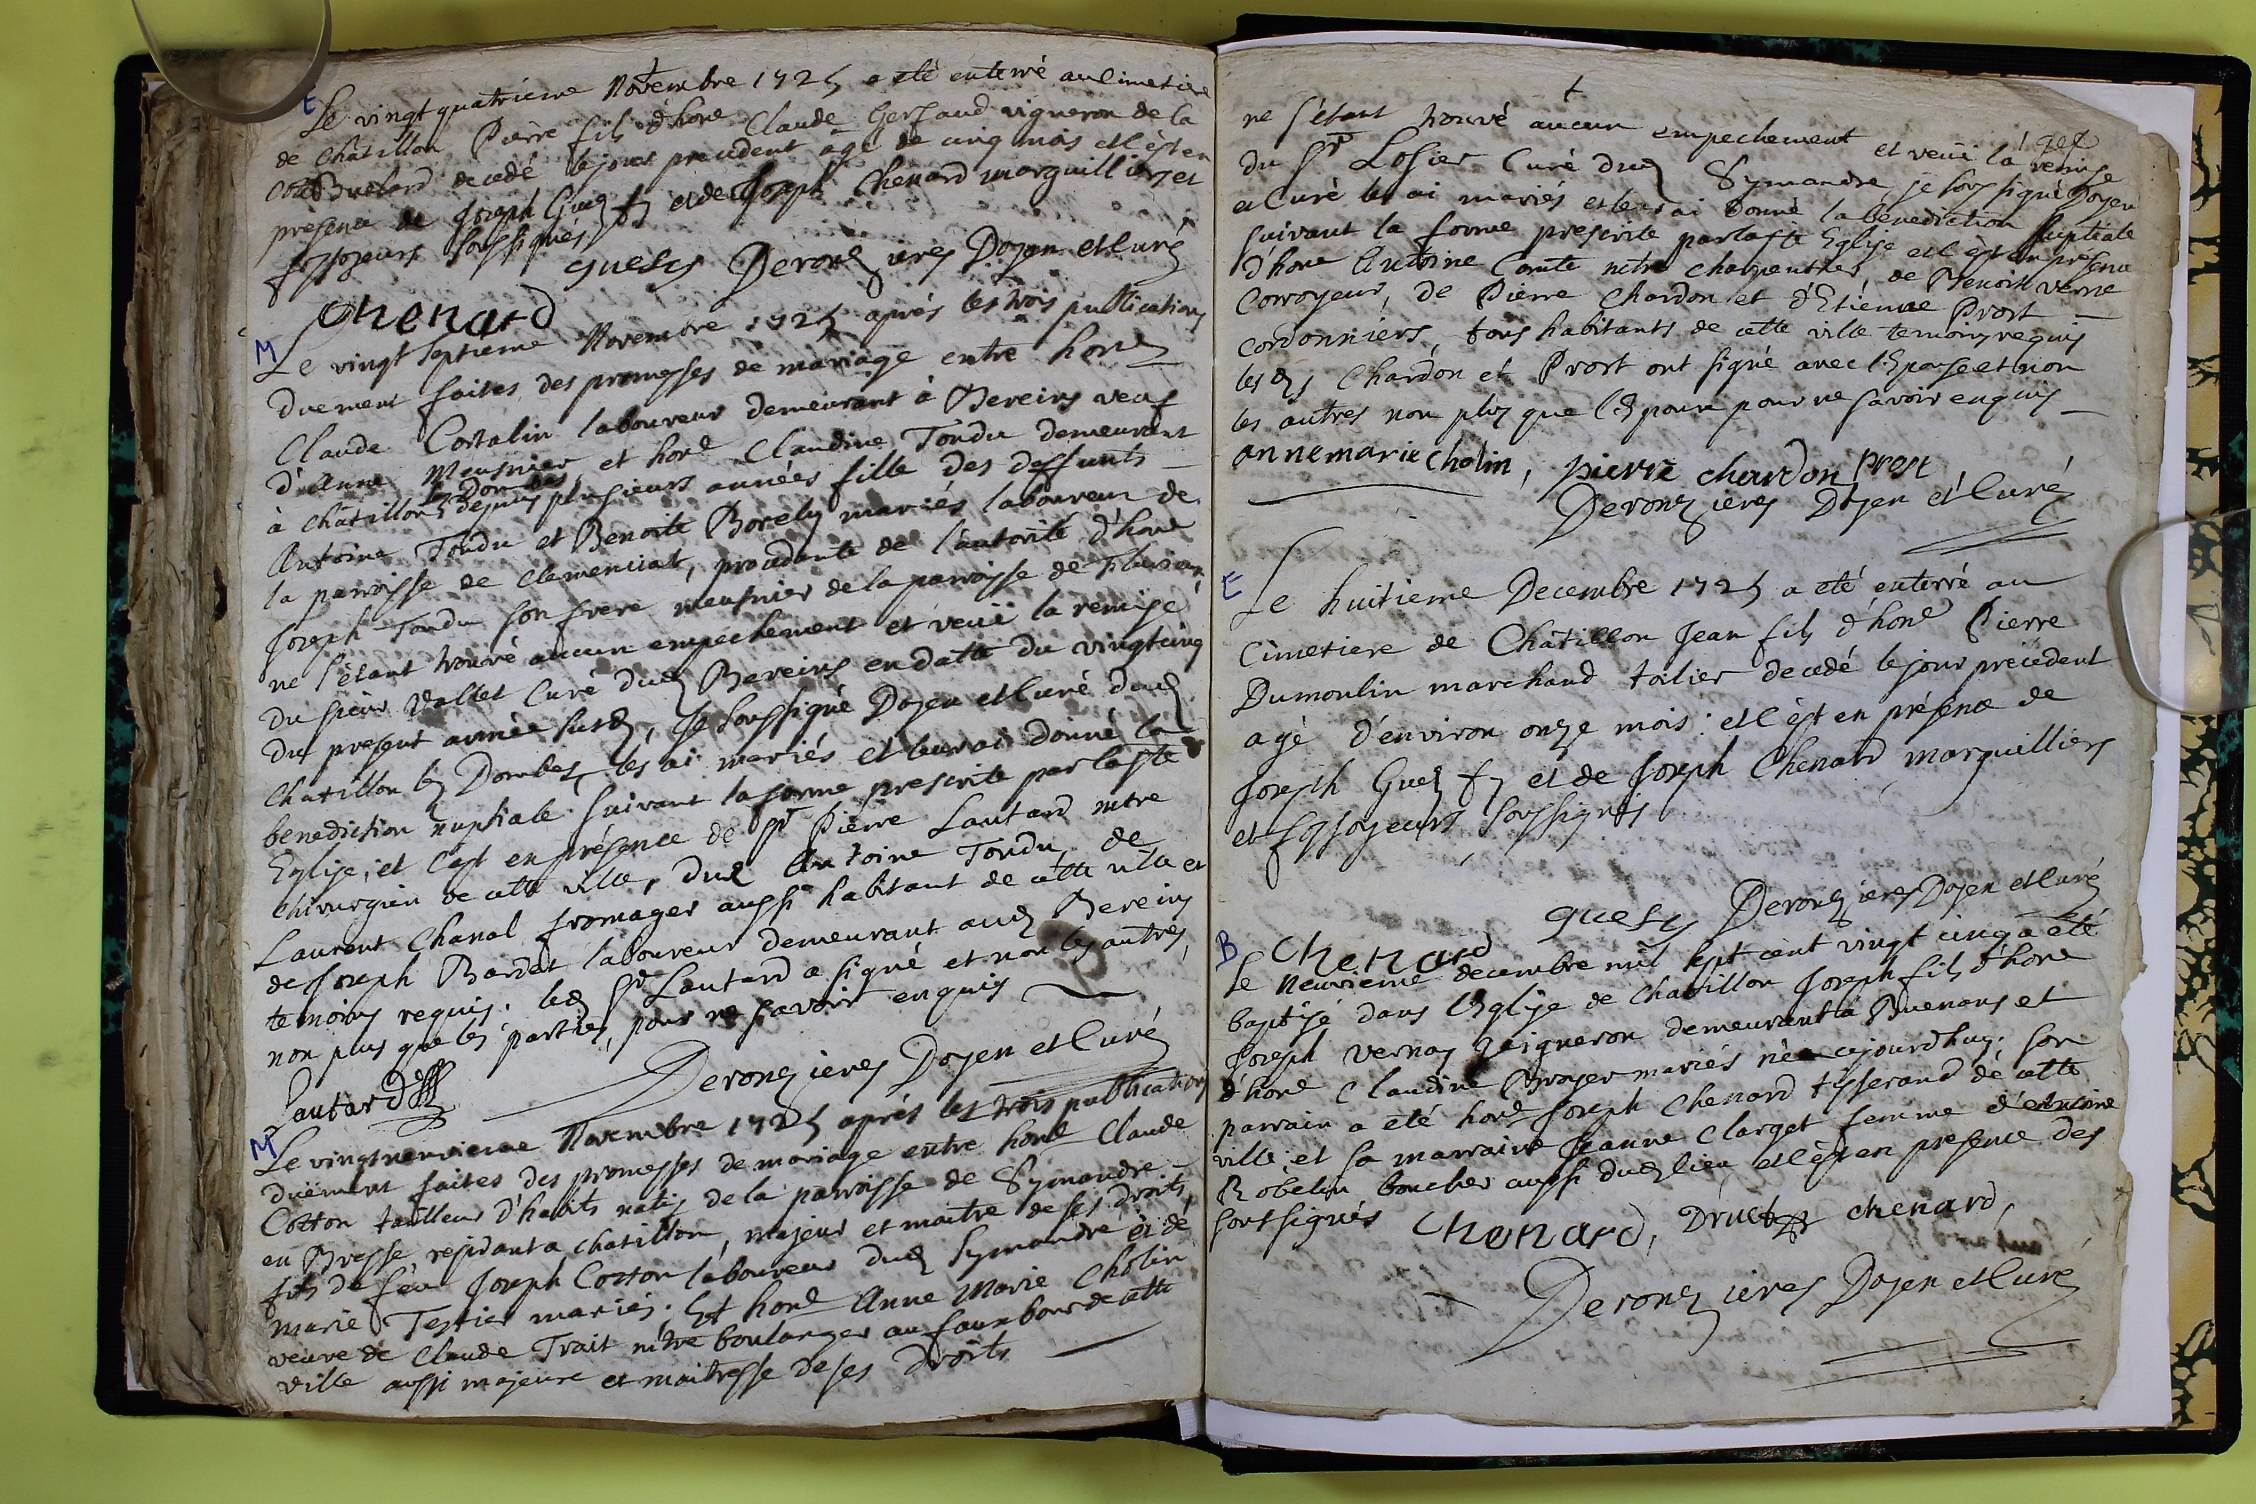 E
Le vingt quatrieme Novembre 1725 a eté enterré au Cimetiere
de Châtillon Pierre fils d'hone Claude Gerfaud vigneron de la
decedé le jour precedent agé de cinq mois et c'est en
presence de Joseph Guel et de Joseph Chenard marguilliers et
fossoyeurs soussignés
quels Deronzieres Doyen et Curé
Chenard
M
Le vingt septieme Novembre 1725 aprés les trois publications
duement faites des promesses de mariage entre hone
Claude Cortalin laboureur demeurant à Bereins veuf
d'Anne Meusnier et hone Claudine Tondu demeurant
à Châtillon les Dombes depuis plusieurs années fille des deffunts
Antoine Tondu et Benoite Borely mariés laboureur de
la paroisse de Clemenciat, procedante de l'autorité d'hone
Joseph Tondu son frere meusnier de la paroisse de
ne s'étant trouvé aucun empechement et veüe la remise
du sieur Vallet Curé dud Bereins en datte du vingtcinq
du present année susd, Je soussigné Doyen et Curé dud
Chatillon les Dombes les ai mariés et leur ai donné la
benediction nuptiale suivant la forme prescrite par la Ste
Eglise; et c'est en présence de Sr Pierre Lautard mtre
chirurgien de cette ville, dud Antoine Tondu, de
Laurent Chanal fromager aussi habitant de cette ville et
de Joseph Bardet laboureur demeurant aud Bereins
temoins requis. led Sr Lautard a signé et non les autres,
non plus que les parties, pour ne savoir enquis
Lautard Deronzieres Doyen et Curé
M
Le vingtneuvieme Novembre 1725 aprés les trois publications
duëment faites des promesses de mariage entre hone Claude
Cotton tailleur d'habits natif de la paroisse de Symandre
en Bresse residant a Chatillon, majeur et maitre de ses droits,
fils de feu Joseph Cotton laboureur dud Symandre et de
Marie Tessier mariés. Et hone Anne Marie Cholin
veuve de Claude Trait mtre boulanger au fauxbour de cette
ville aussi majeure et maitresse de ses droits
ne s'étant trouvé aucun empechement et veüe la remise
du Sr Losier Curé dud Symandre, je soussigné Doyen
et Curé les ai mariés et leur ai donné la benediction nuptiale
suivant la forme prescrite par la Ste Eglise et c'est en presence
d'hone Antoine Comte mtre charpentier, de Benoit Verne
Corroyeur, de Pierre Chardon et d'Etienne Prost
cordonniers, tous habitants de cette ville temoins requis
lesds Chardon et Prost ont signé avec l'Epouse et non
les autres non plus que l'Epoux pour ne savoir enquis
annemarie cholin, pierre chardon prost
Deronzieres Doyen et Curé
E
Le huitieme Decembre 1725 a eté enterré au
Cimetiere de Châtillon Jean fils d'hone Pierre
Dumoulin marchand toilier decedé le jour précédent
agé d'environ onze mois: et c'est en présence de
Joseph Guel et de Joseph Chenard, marguilliers
et fossoyeurs soussignés
quels Deronzieres Doyen et Curé
Chenard
B
Le Neuvieme decembre mil sept cent vingt cinq a eté
baptisé dans l'Eglise de Chatillon Joseph fils d'hone
Joseph Vernay vigneron demeurant à Buenans et
d'hone Claudine Broyer mariés né aujourdhuy. son
parrain a eté hone Joseph Chenard tisserand de cette
ville; et sa marraine Jeanne Clarget femme d'Antoine
Robelin boucher aussi dud lieu et c'est en presence des
soussignés Chenard, Druet chenard,
Deronzieres Doyen et Curé